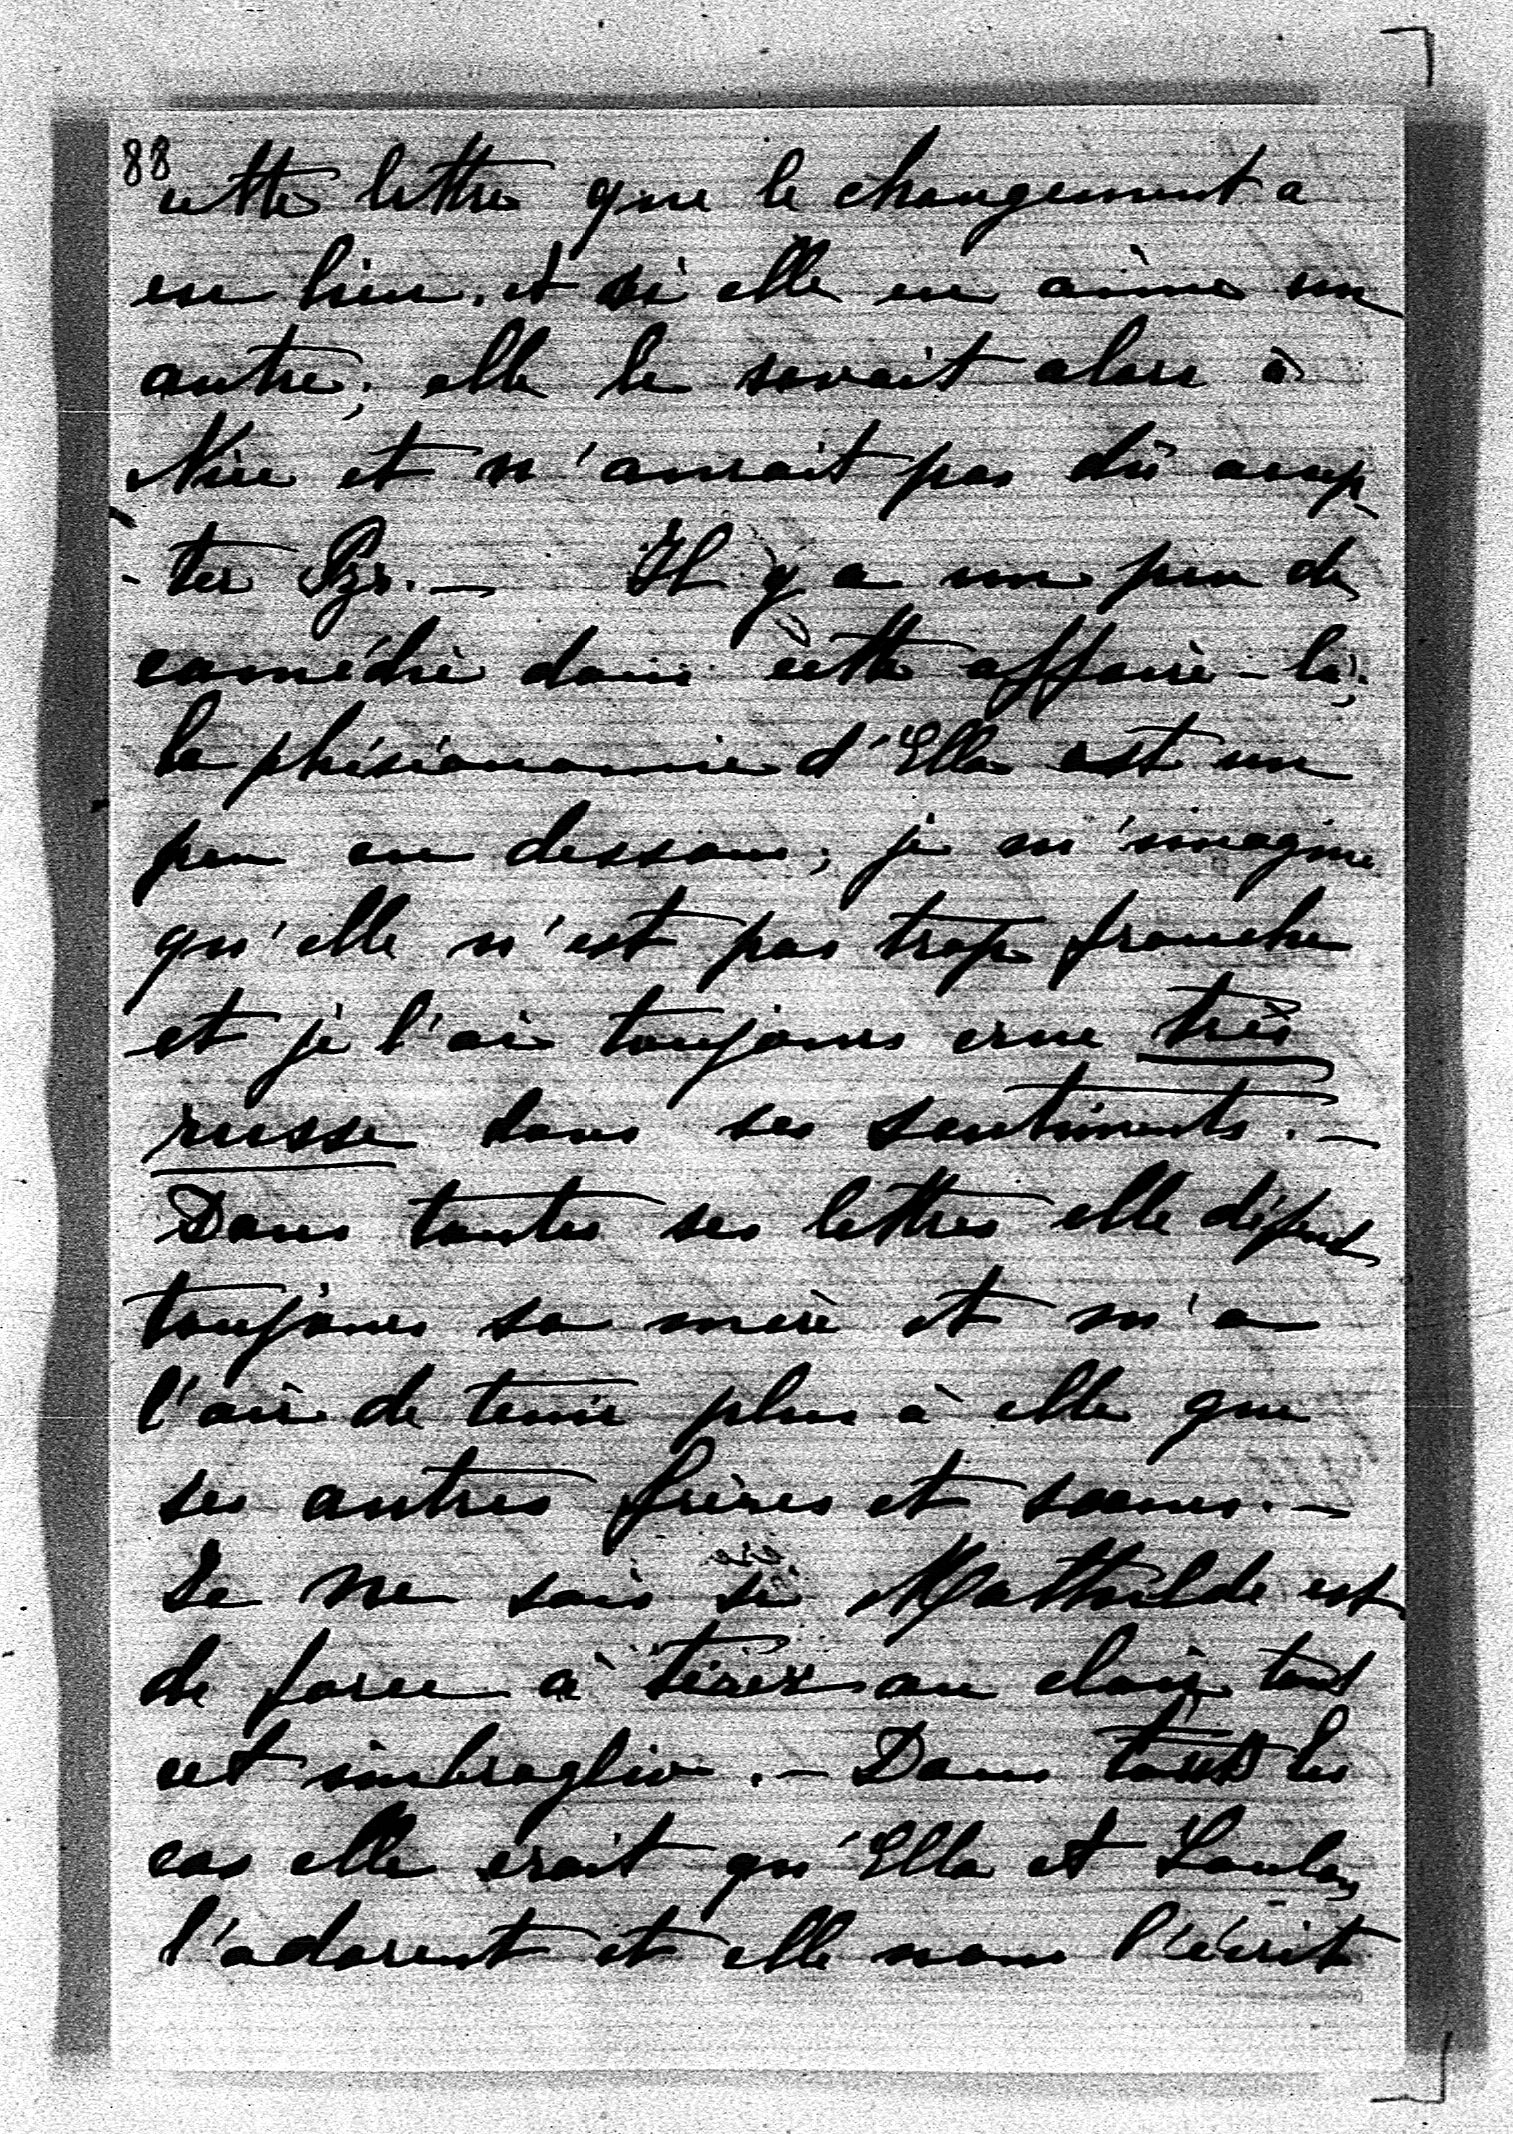 88
cette lettre que le changement a
eu lieu. et si elle en aime un
autre, elle le savait alors à
Nice et n'aurait pas dû accep-
-ter Pzs. — Il y a un peu de
comédie dans cette affaire-là;
la phisionomie d'Ella est un
peu en dessous; je m'imagine
qu'elle n'est pas trop franche
et je l'ai toujours crue très
russe dans ses sentiments. —
Dans toutes ses lettres elle défend
toujours sa mère et m'a
l'air de tenir plus à elle que
ses autres frères et sœurs. —
Je ne sais si Mathilde est
de force à tirer au clair tout
cet imbroglio. — Dans tous les
cas elle croit qu'Ella et Loulou
l'adorent et elle nous l'écrit